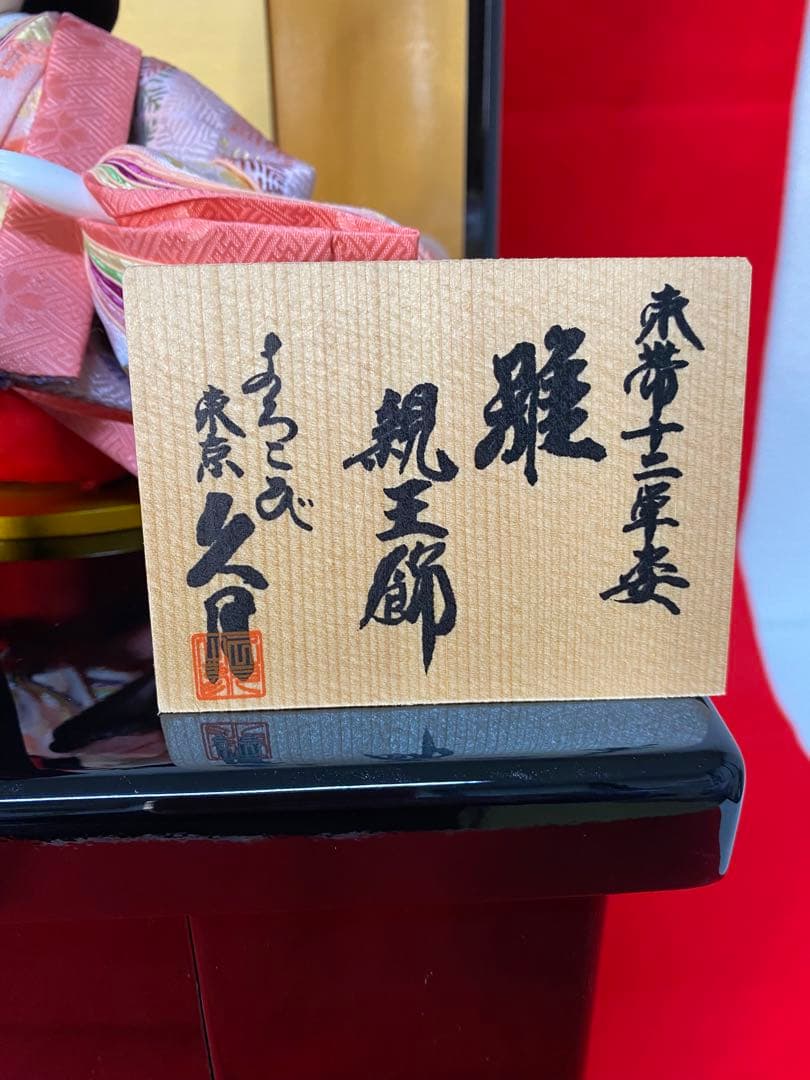 束帯十二単姿
雛
親王飾
よろこび
東京 久月